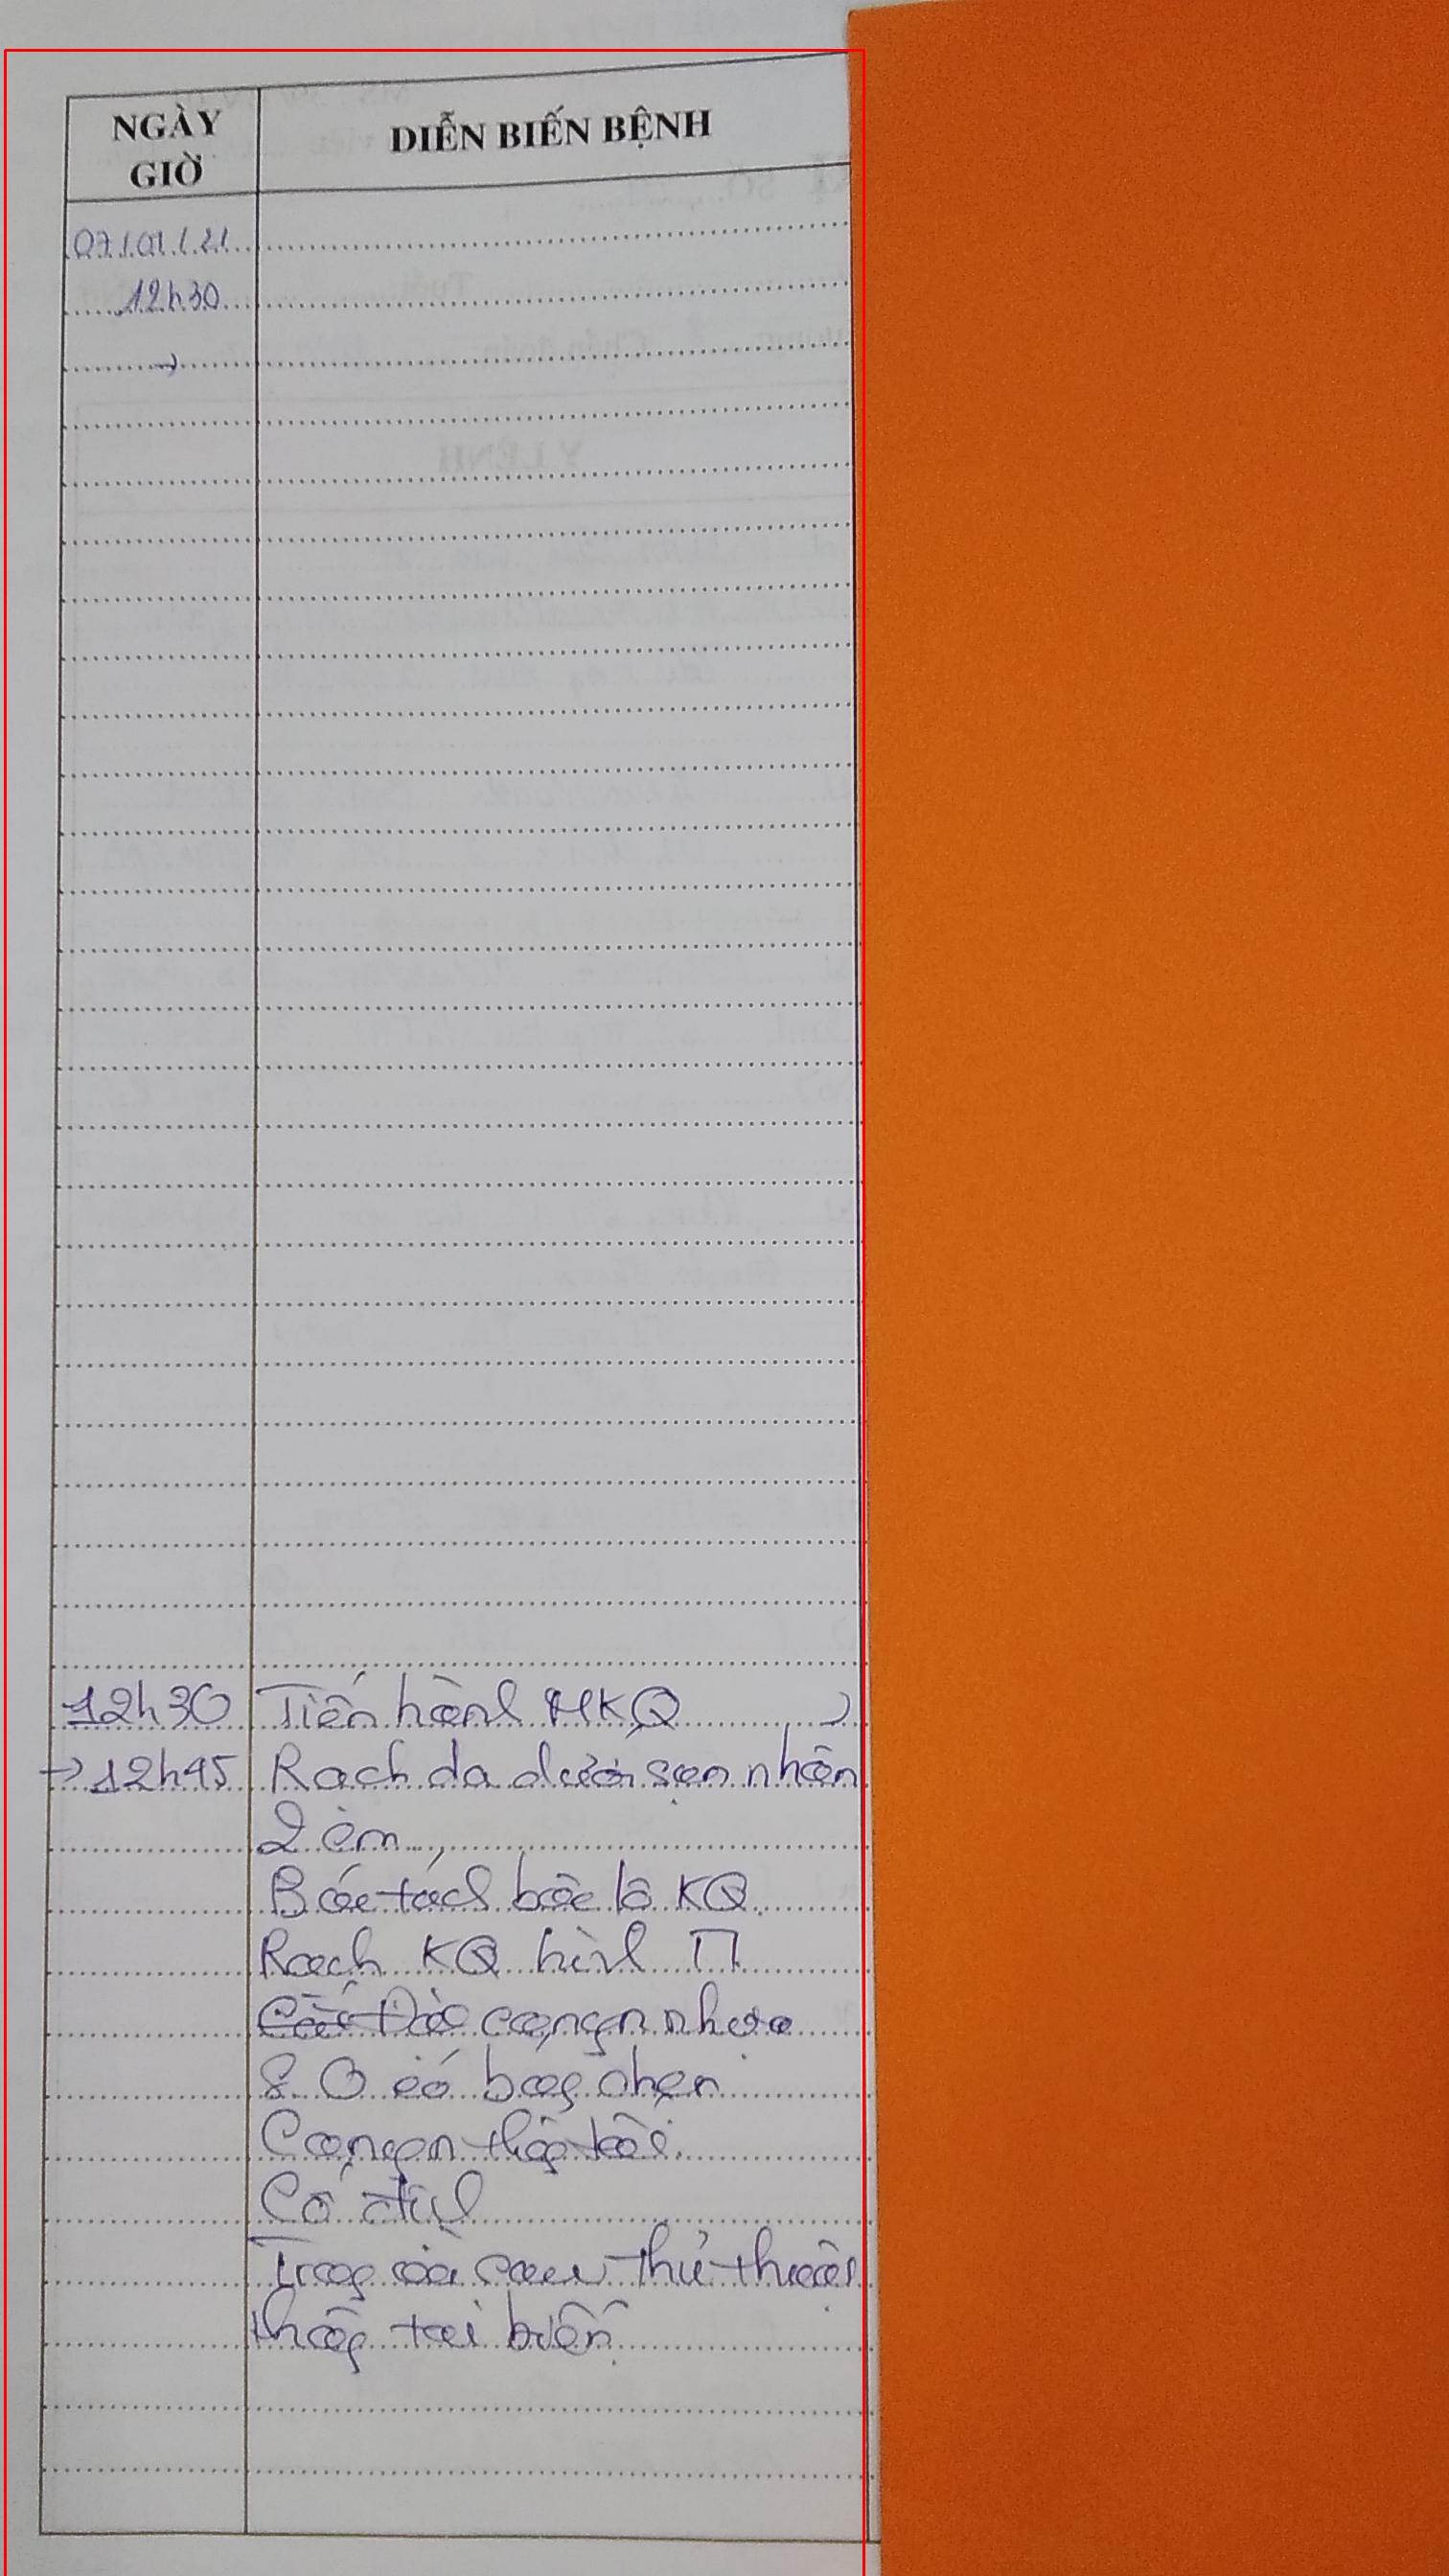 NGÀY GIỜ
DIỄN BIẾN BỆNH
07/01/21
12h30
→
12h30 Tiến hành MKQ
→ 12h45 Rạch da dưới sụn nhẫn
2 cm
Bóc tách bộc lộ KQ
Rạch KQ hình Π
canyn nhựa
8.0 có bóng chèn
Canyn
Cố định
Trong và sau thủ thuật
không tai biến